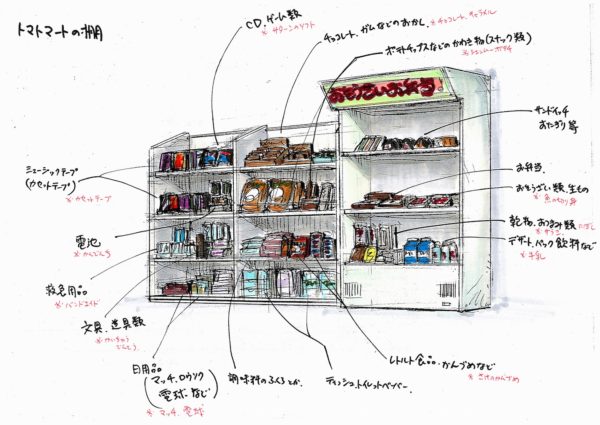 トマトマートの棚
CD、ゲーム類
※サターンのソフト
チョコレート、ガムなどのおかし
※チョコレート、キャラメル
ポテトチップスなどのかわき物(スナック類)
おそうざい・お弁当
サンドイッチ
おにぎり等
ミュージックテープ
(カセットテープ)
※カセットテープ
お弁当
おそうざい類、生もの
※魚の切り身
電池
※かんでんち
乾物、おつまみ類
デザート、パック飲料など
※牛乳
救急用品
※バンドエイド
文具、道具類
※かいちゅうでんとう
日用品
(マッチ、ロウソク
電球など)
※マッチ、電球
調味料のふくろとか
ティッシュ、トイレットペーパー
レトルト食品、かんづめなど